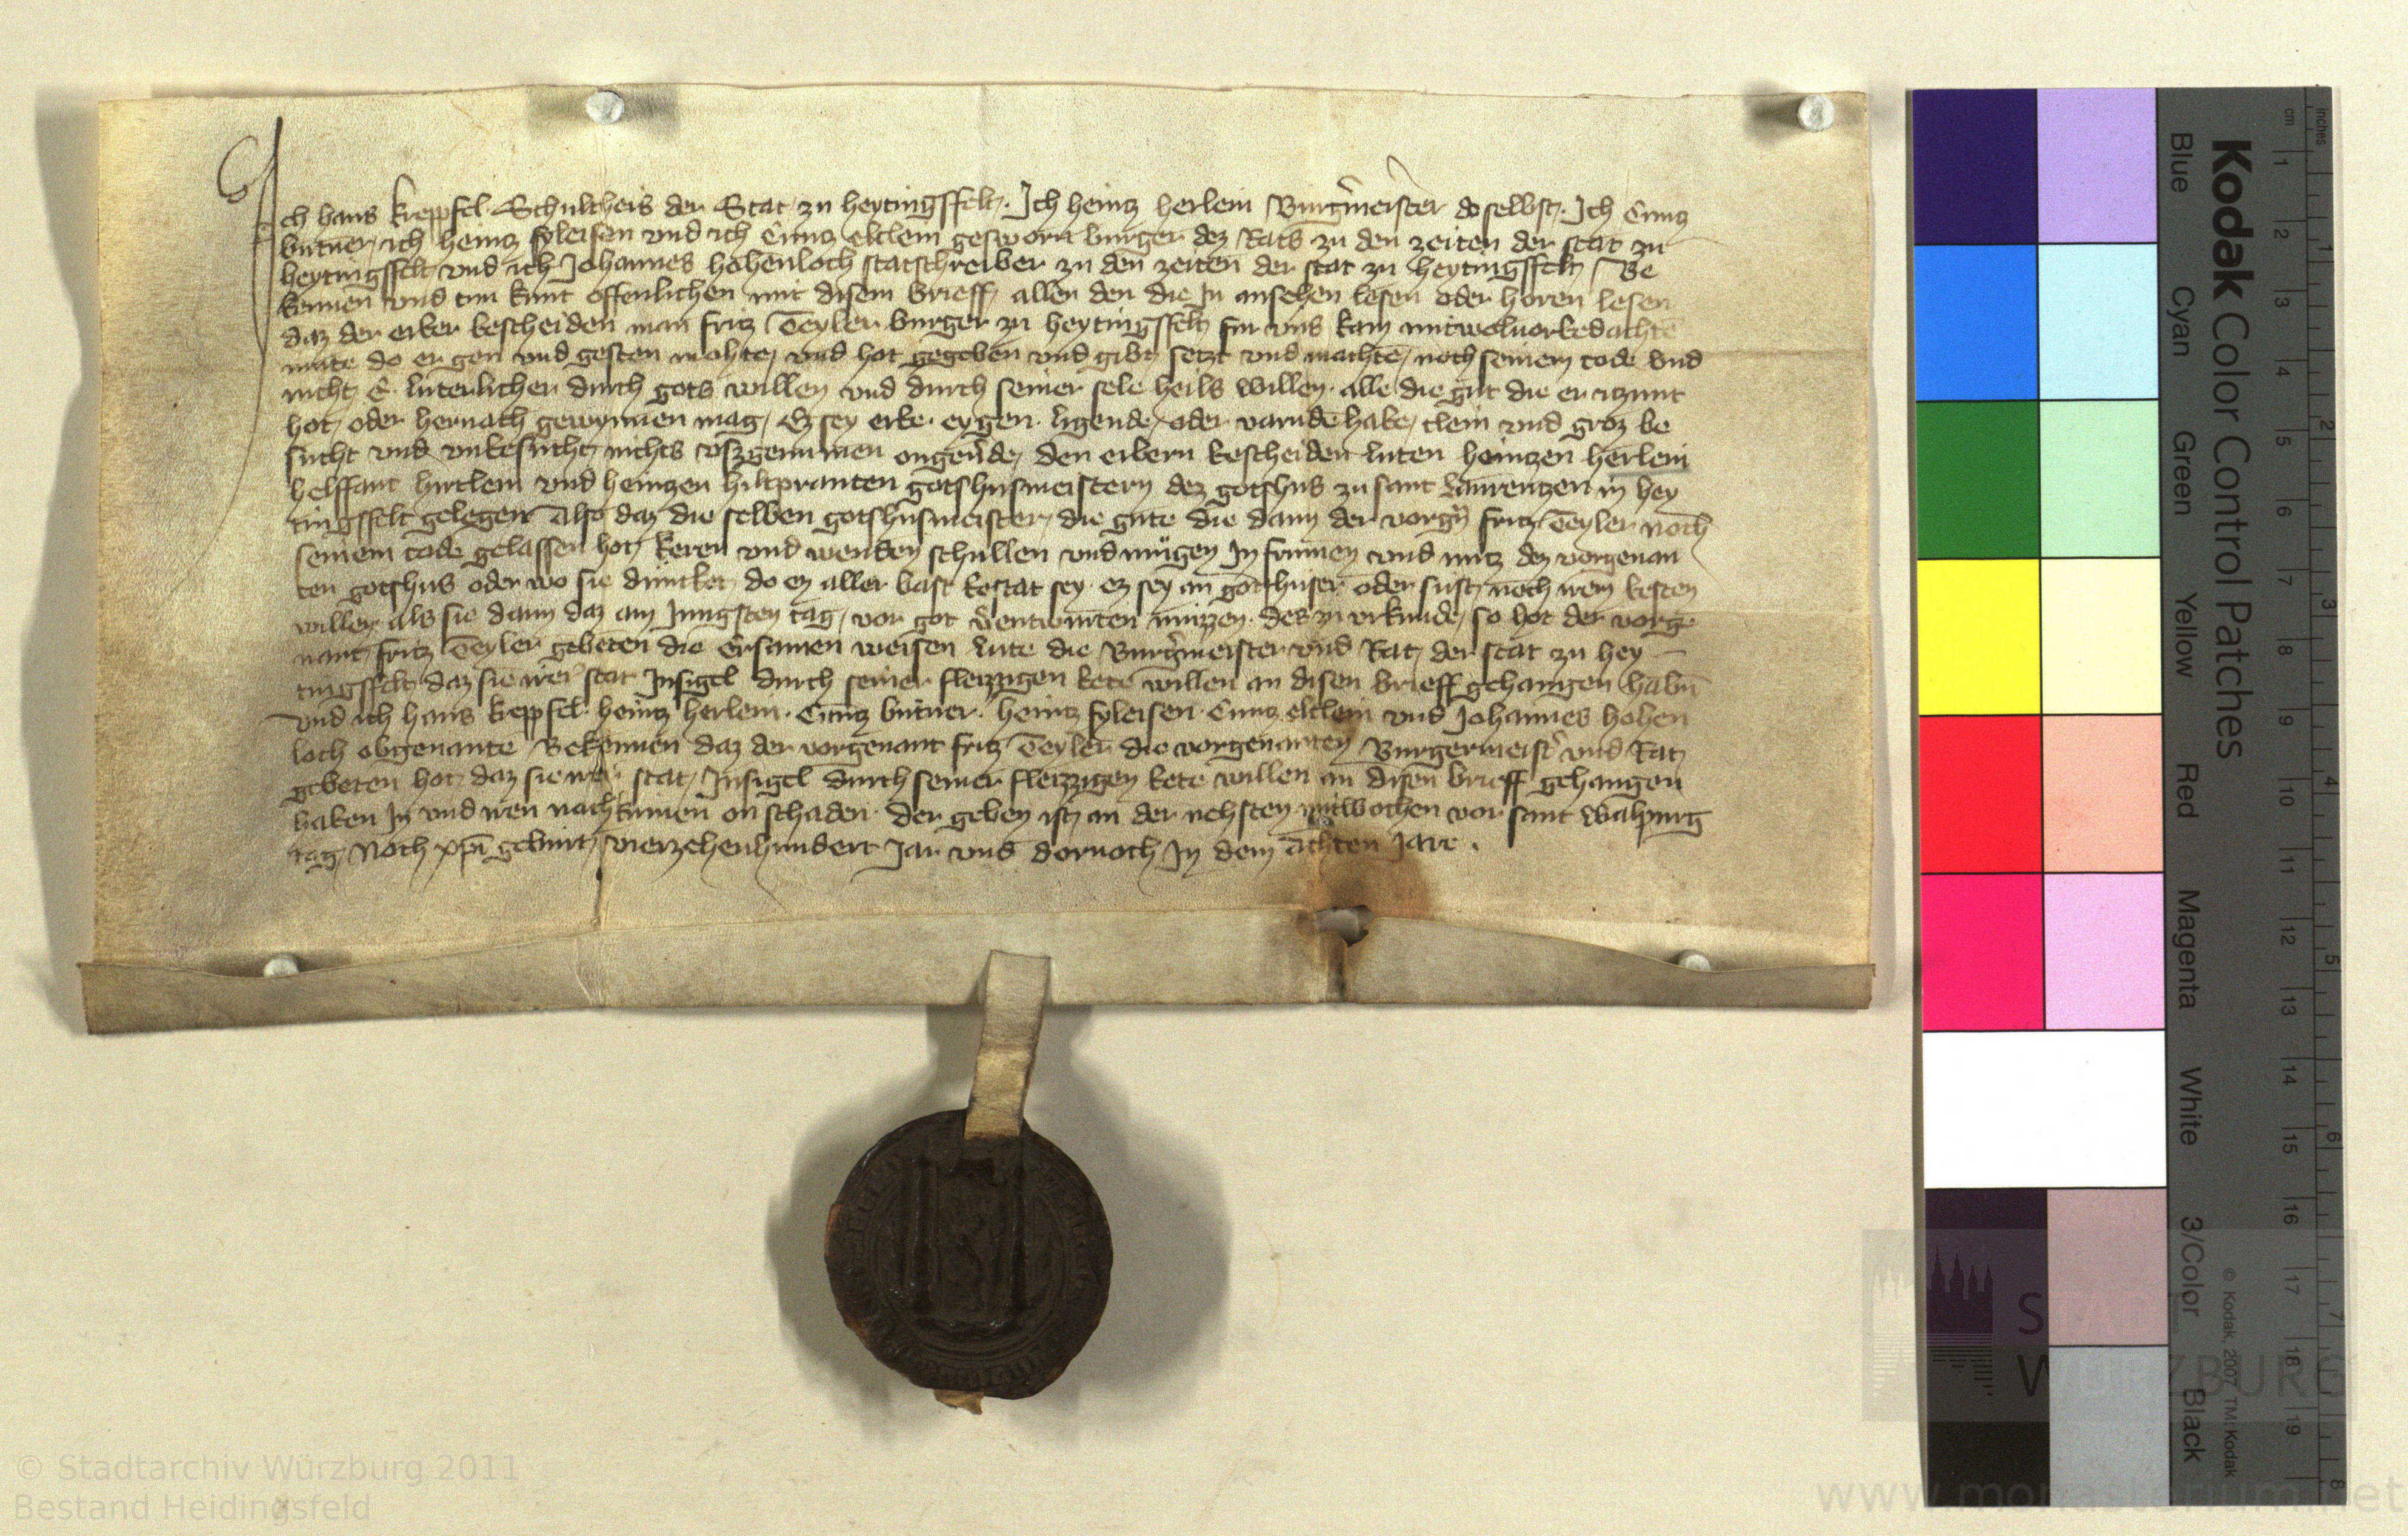 Ich hans kreppfel Schultheis der Stat zu heytingsfelt. Ich heintz herlein Burgermeister do selbst. Ich Cuntz
butner, ich heintz fyleisen vnd ich Cuntz elclem gesworn burger dez Rats zu den zeiten der stat zu
heytingsfelt vnd ich Johannes hohenloch statschreiber zu den zeiten der stat zu heytingsfelt Be
kennen vnd tun kunt offenlichen mit disem brieff, allen den die In ansehen lesen oder horen lesen
daz der erber bescheiden man fritz Teyler burger zu heytingsfelt fur vns kam mit wolvorbedachtē
mute do er gen vnd gesten mohte, vnd hot gegeben vnd gibt setzt vnd machte, noch seinem tode vnd
nicht E. luterlichen durch gots willen vnd durch seiner sele heils willen. alle die gut die er itzunt
hot, oder hernach gewynnen mag, Ez sey erbe. eygen. ligende, oder varnde habe, clein vnd groz be
sucht vnd vnbesucht, nichts vszgenumen ongeũde, den erbern bescheiden luten heintzen herlein
helffant hirtlein vnd heintzen hiltpranten gotshusmeistern dez gotshus zu sant laurentzen in hey
tingsfelt gelegen Also daz die selben gotshusmeister, die gute die dann der vorgñ fritz Teyler noch
seinem tode gelassen hot, keren vnd wenden schullen vnd mügen In frumen vnd nutz dez vorgenan
ten gotshus oder wo sie duncket do ez aller bast bestat sey ez sey an gotshuser oder sust, noch irem besten
willen als sie dann daz am Jungsten tag, vor got ṽentwurten müzzen. des zu vrkunde, so hot der vorge
nant fritz Teyler gebeten die Ersamen weisen lute die Burgermeister vnd Rat, der stat zu hey
tingsfelt daz sie irer stat Insigel durch seiner fleizzigen bete willen an disen brieff gehangen habn
vnd ich hans kreppfel heintz herlein. Cuntz butner. heintz fyleisen Cuntz elclem vnd Johannes hohen
loch obgenante Bekennen daz der vorgenant fritz Teyler die vorgenanten Burgermeist vnd Rat
gebeten hot, daz sie irer stat, Insigel durch seiner fleizzigen bete willen an disen brieff gehangen
haben In vnd iren nachkumen on schaden. der geben ist, an der nehsten mitwochen vor sant walpurg
tag, Noch xpi geburt, vierzehenhundert Jar vnd dornoch In dem achten Jare.
Kodak Color Control Patches
Blue Cyan Green Yellow Red Magenta White 3/Color Black
© Kodak, 2007 TM: Kodak
cm 1 2 3 4 5 6 7 8 9 10 11 12 13 14 15 16 17 18 19
inches 1 2 3 4 5 6 7 8
STADT
WÜRZBURG
© Stadtarchiv Würzburg 2011
Bestand Heidingsfeld
www.monasterium.net